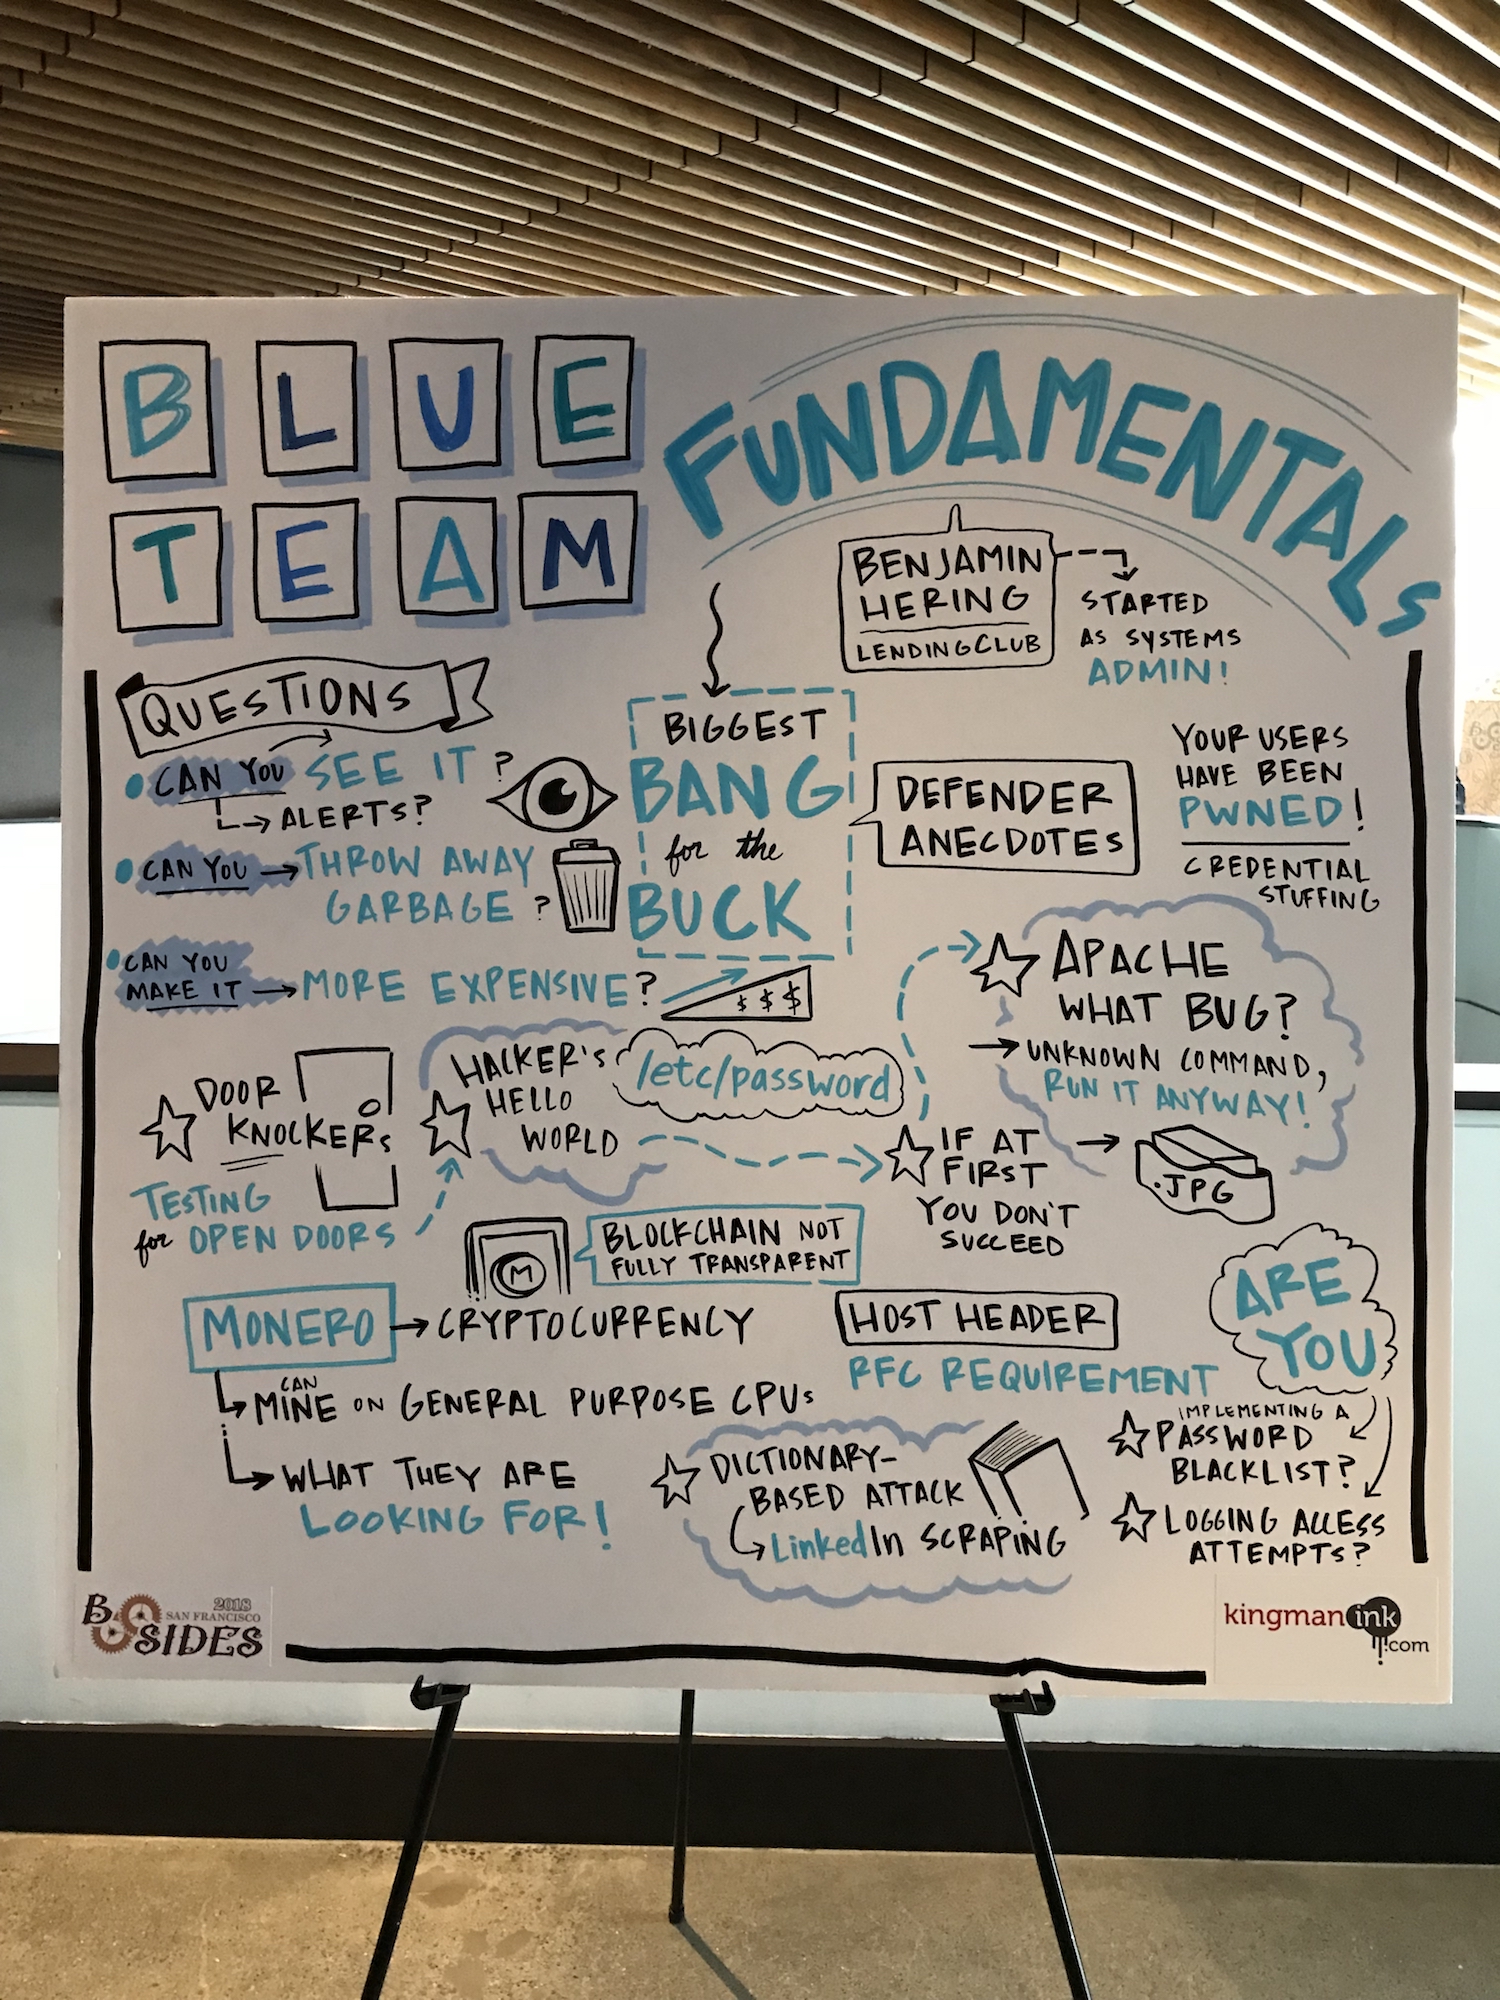 BLUE
TEAM
FUNDAMENTALS
BENJAMIN
HERING
LENDINGCLUB
STARTED
AS SYSTEMS
ADMIN!
QUESTIONS
CAN YOU SEE IT?
ALERTS?
CAN YOU THROW AWAY
GARBAGE?
CAN YOU
MAKE IT MORE EXPENSIVE?
$ $ $
BIGGEST
BANG
for the
BUCK
DEFENDER
ANECDOTES
YOUR USERS
HAVE BEEN
PWNED!
CREDENTIAL
STUFFING
APACHE
WHAT BUG?
UNKNOWN COMMAND,
RUN IT ANYWAY!
.JPG
DOOR
KNOCKERS
TESTING
for OPEN DOORS
HACKER'S
HELLO
WORLD
/etc/password
IF AT
FIRST
YOU DON'T
SUCCEED
M
BLOCKCHAIN NOT
FULLY TRANSPARENT
MONERO CRYPTOCURRENCY
CAN
MINE ON GENERAL PURPOSE CPUs
WHAT THEY ARE
LOOKING FOR!
HOST HEADER
RFC REQUIREMENT
DICTIONARY-
BASED ATTACK
LinkedIn SCRAPING
ARE
YOU
IMPLEMENTING A
PASSWORD
BLACKLIST?
LOGGING ACCESS
ATTEMPTS?
2018
B SAN FRANCISCO
SIDES
kingman ink
.com